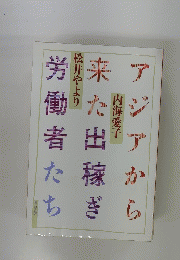 アジアから
来た出稼ぎ
労働者たち
内海愛子
松井やより